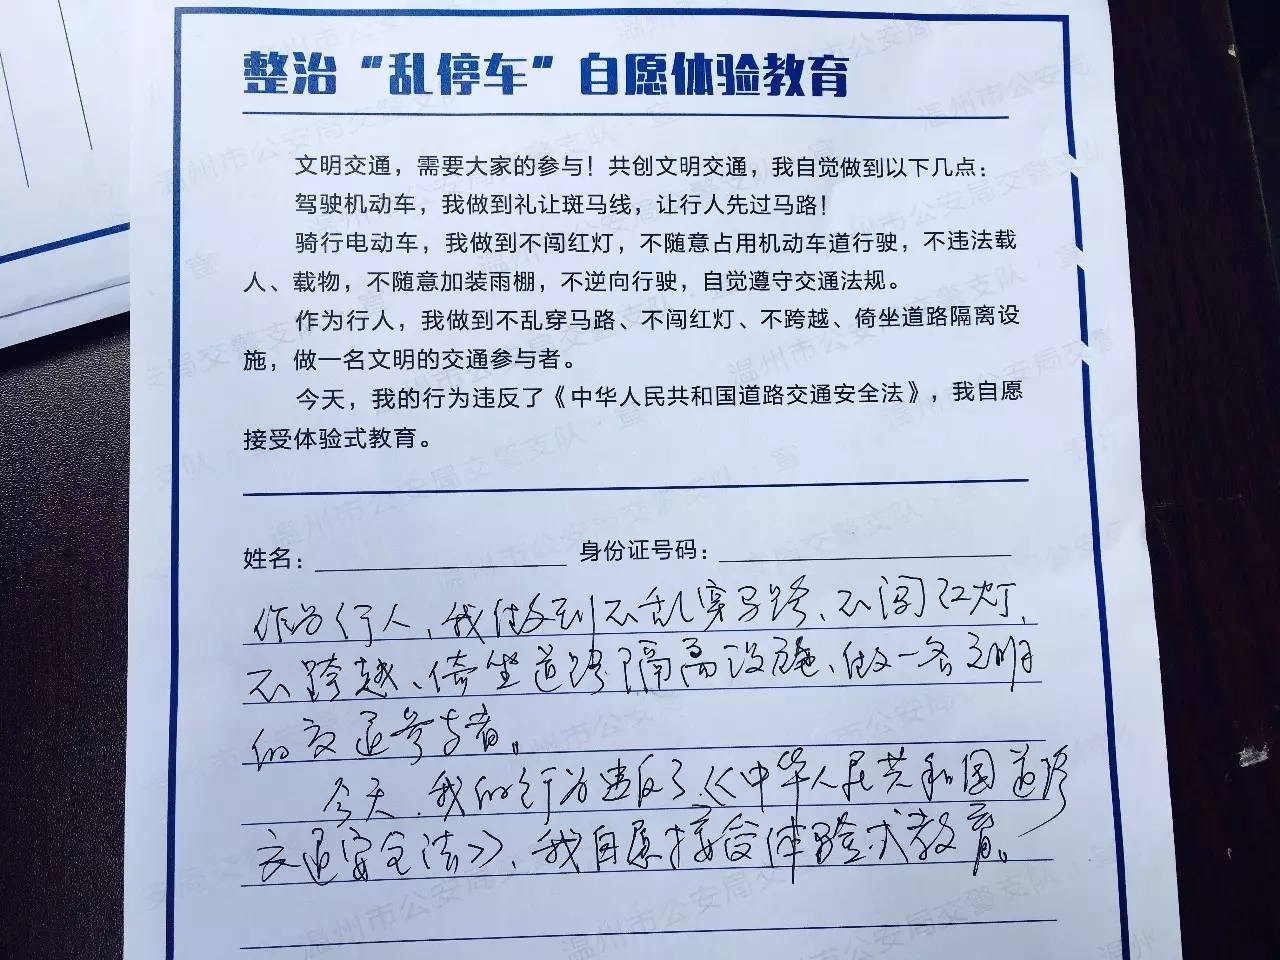 整治“乱停车”自愿体验教育
文明交通，需要大家的参与！共创文明交通，我自觉做到以下几点：
驾驶机动车，我做到礼让斑马线，让行人先过马路！
骑行电动车，我做到不闯红灯，不随意占用机动车道行驶，不违法载
人、载物，不随意加装雨棚，不逆向行驶，自觉遵守交通法规。
作为行人，我做到不乱穿马路、不闯红灯、不跨越、倚坐道路隔离设
施，做一名文明的交通参与者。
今天，我的行为违反了《中华人民共和国道路交通安全法》，我自愿
接受体验式教育。
姓名： 身份证号码：
作为行人，我做到不乱穿马路、不闯红灯、
不跨越、倚坐道路隔离设施、做一名文明
的交通参与者。
今天，我的行为违反了《中华人民共和国道路
交通安全法》，我自愿接受体验式教育。
温州市公安局交警支队·宣